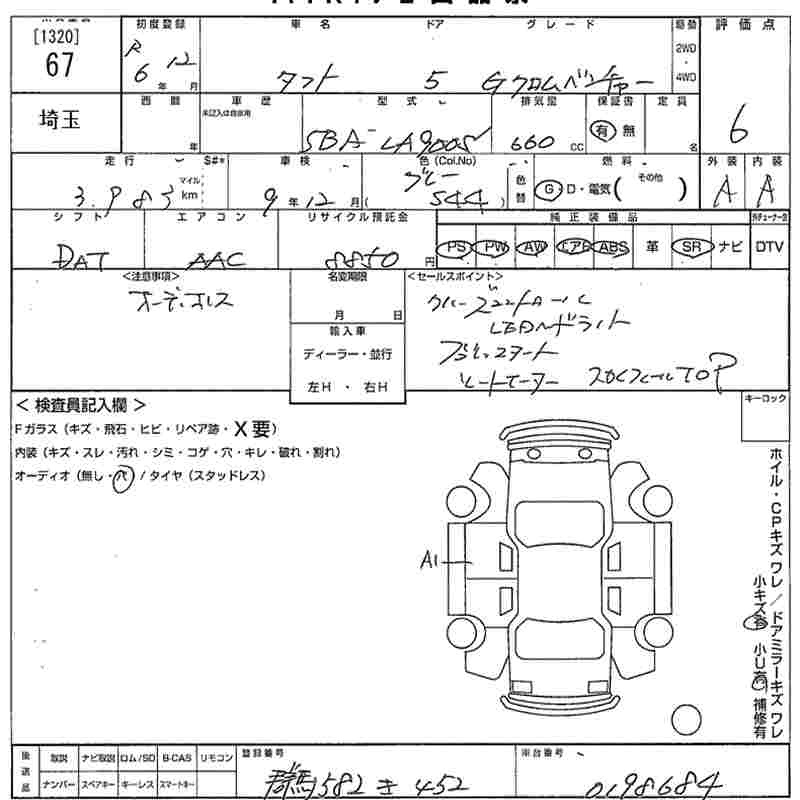 [1320]
67
初度登録 車名 ドア グレード 駆動 評価点
R 6年 12月 タフト 5 Gクロムベンチャー 2WD・4WD
埼玉
西暦 車歴 型式 排気量 保証書 定員
未記入は自家用
年 5BA-LA900S 660 cc 有 無 名 6
走行 S#* 車検 色(Col.No) 燃料 外装 内装
3,983 マイル km 9年 12月 グレー 544 色替 G・D・電気( その他 ) A A
シフト エアコン リサイクル預託金 純正装備品
DAT AAC 8850円 PS PW AW エアB ABS 革 SR ナビ DTV
<注意事項> 名変期限 <セールスポイント>
オーディオレス
月 日
輸入車
ディーラー・並行
左H・右H
LEDヘッドライト
プッシュスタート
シートヒーター
キーロック
<検査員記入欄>
Fガラス(キズ・飛石・ヒビ・リペア跡・X要)
内装(キズ・スレ・汚れ・シミ・コゲ・穴・キレ・破れ・割れ)
オーディオ(無し・穴)/タイヤ(スタッドレス)
A1
ホイル・CPキズ ワレ/ドアミラーキズ ワレ
小キズ有 小U有 補修有
後送品 取説 ナビ取説 ロム/SD B-CAS リモコン 登録番号 車台番号
ナンバー スペアキー キーレス スマートキー 群馬 582 き 452 0198684